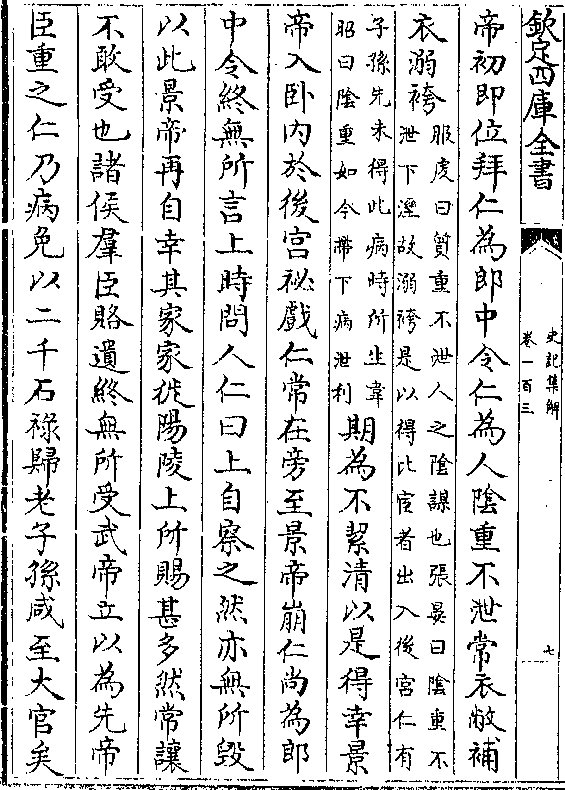 欽定四庫全書
史記集解
卷一百三
七
帝初即位拜仁為郎中令仁為人陰重不泄常衣敝補
衣溺袴
服虔曰質重不泄人之陰謀也張晏曰陰重不
泄下溼故溺袴是以得比宦者出入後宮仁有
子孫先未得此病時所生韋
昭曰陰重如今帶下病泄利
期為不絜清以是得幸景
帝入卧内於後宫祕戲仁常在旁至景帝崩仁尚為郎
中令終無所言上時問人仁曰上自察之然亦無所毁
以此景帝再自幸其家家徙陽陵上所賜甚多然常讓
不敢受也諸侯羣臣賂遺終無所受武帝立以為先帝
臣重之仁乃病免以二千石禄歸老子孫咸至大官矣